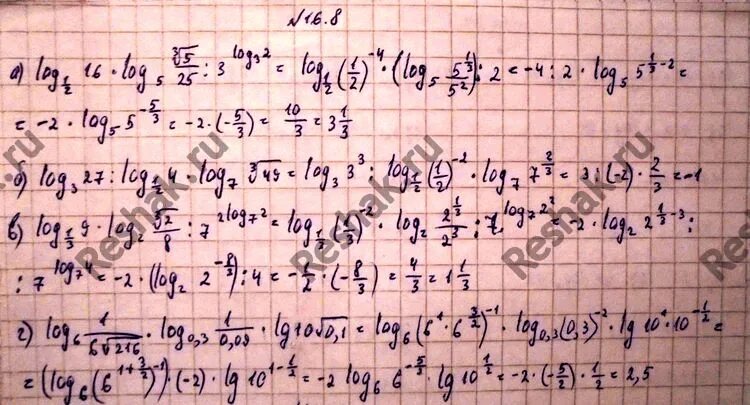 №16.8
а) log_{1/2} 16 · log_5 ∛5/25 : 3^{log_3 2} = log_{1/2} (1/2)^{-4} · (log_5 5^{1/3}/5^2) : 2 = -4 : 2 · log_5 5^{1/3-2} =
= -2 · log_5 5^{-5/3} = -2 · (-5/3) = 10/3 = 3 1/3
б) log_3 27 : log_{1/2} 4 · log_7 ∛49 = log_3 3^3 : log_{1/2} (1/2)^{-2} · log_7 7^{2/3} = 3 : (-2) · 2/3 = -1
в) log_{1/3} 9 · log_2 ∛2/8 : 7^{2log_7 2} = log_{1/3} (1/3)^{-2} · log_2 2^{1/3}/2^3 : 7^{log_7 2^2} = -2 · log_2 2^{1/3-3} :
: 7^{log_7 4} = -2 · (log_2 2^{-8/3}) : 4 = -1/2 · (-8/3) = 4/3 = 1 1/3
г) log_6 1/6√216 · log_{0,3} 1/0,09 · lg 10√0,1 = log_6 (6^1 · 6^{3/2})^{-1} · log_{0,3} (0,3)^{-2} · lg 10^1 · 10^{-1/2} =
= (log_6 (6^{1+3/2})^{-1}) · (-2) · lg 10^{1-1/2} = -2 log_6 6^{-5/2} · lg 10^{1/2} = -2 · (-5/2) · 1/2 = 2,5
Reshak.ru
Reshak.ru
Reshak.ru
Reshak.ru